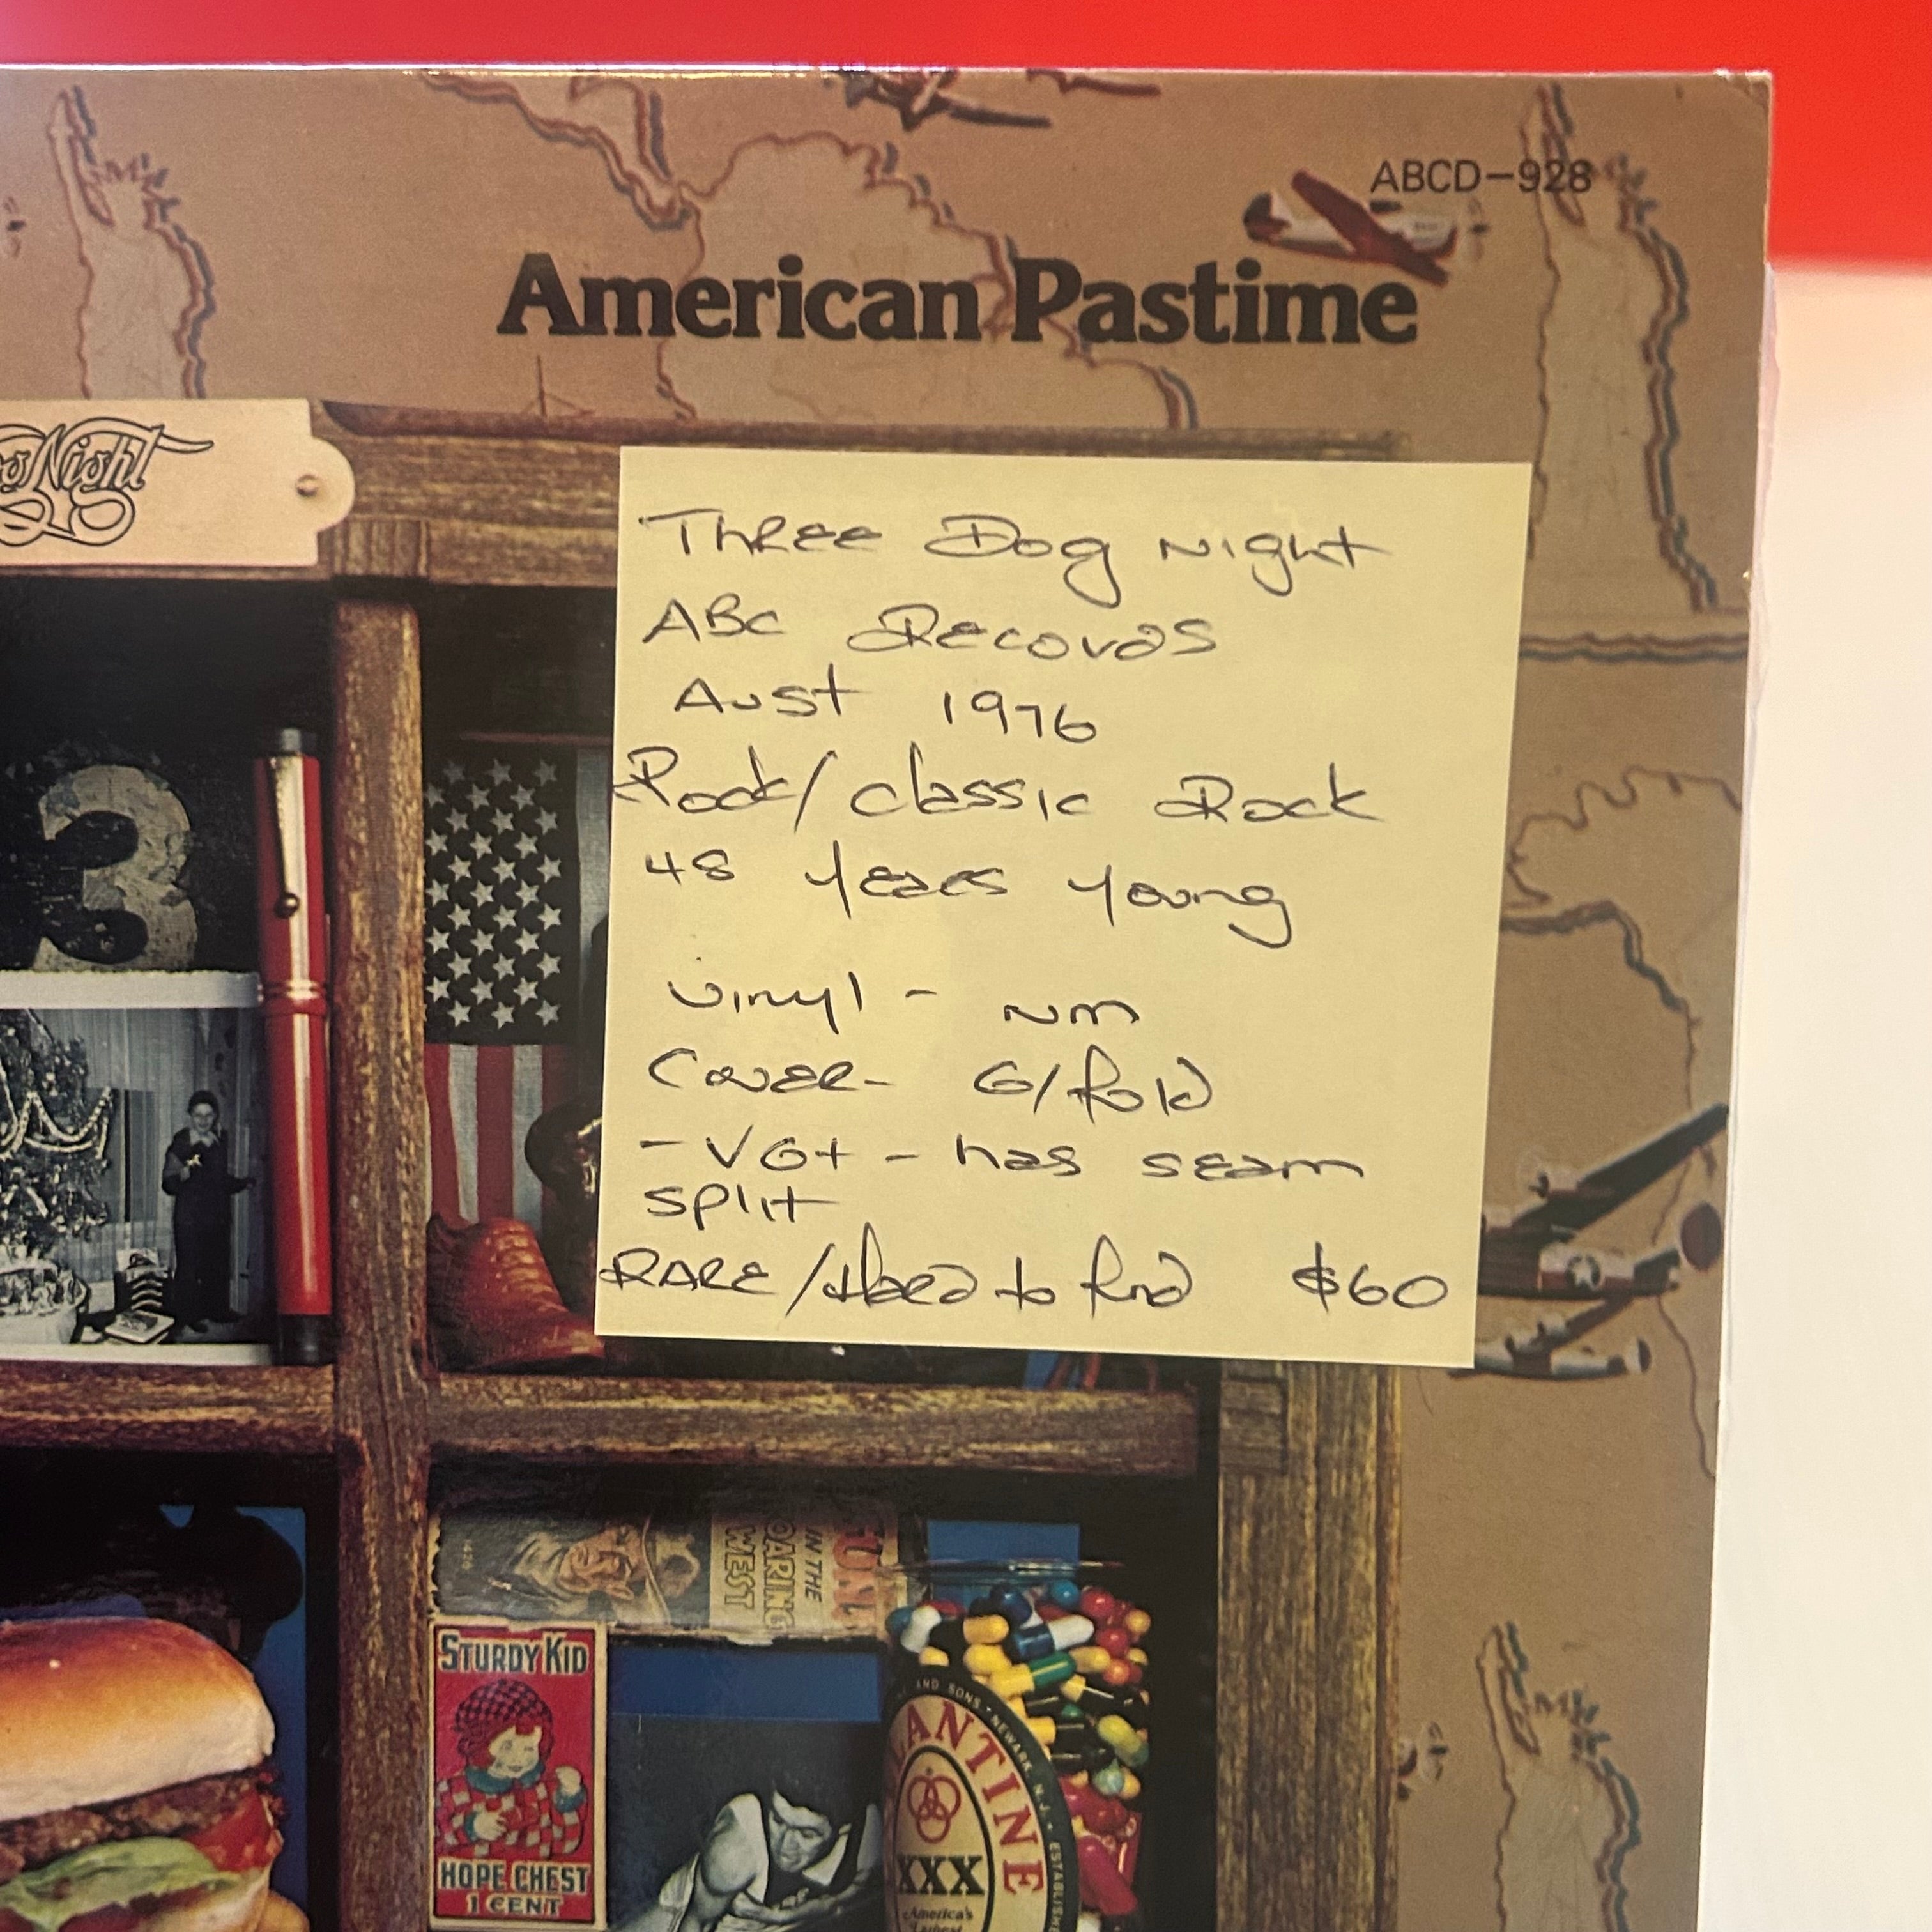 ABCD-928
American Pastime
og Night
Three Dog Night
ABC Records
Aust 1976
Rock/Classic Rock
48 years young
Vinyl - NM
Cover - G/fold
- VG+ - has seam
split
RARE/Hard to find $60
3
IN THE
OARING
WEST
STURDY KID
HOPE CHEST
1 CENT
AND SONS • NEWARK, N.J. •
LANTINE
XXX
America's